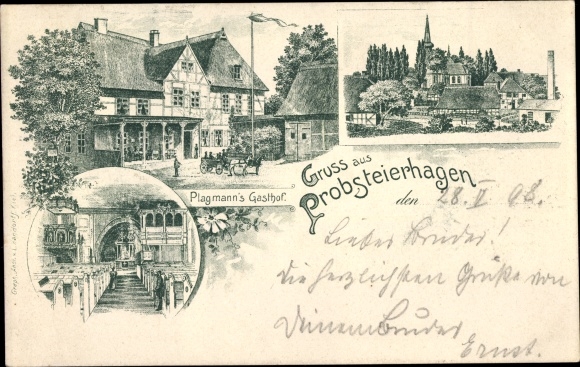 Plagmann's Gasthof.
Gruss aus
Probsteierhagen
den 28. V 98.
Lieber Bruder!
Die herzlichsten Grüße von
Deinem Bruder
Ernst.